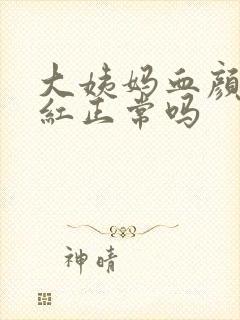 大姨妈血颜
红正常吗
神晴